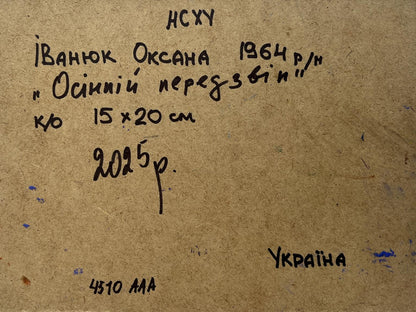 НСХУ
Іванюк Оксана 1964 р/н
„Осінній передзвін"
к/о 15×20 см
2025р.
Україна
4510 ААА